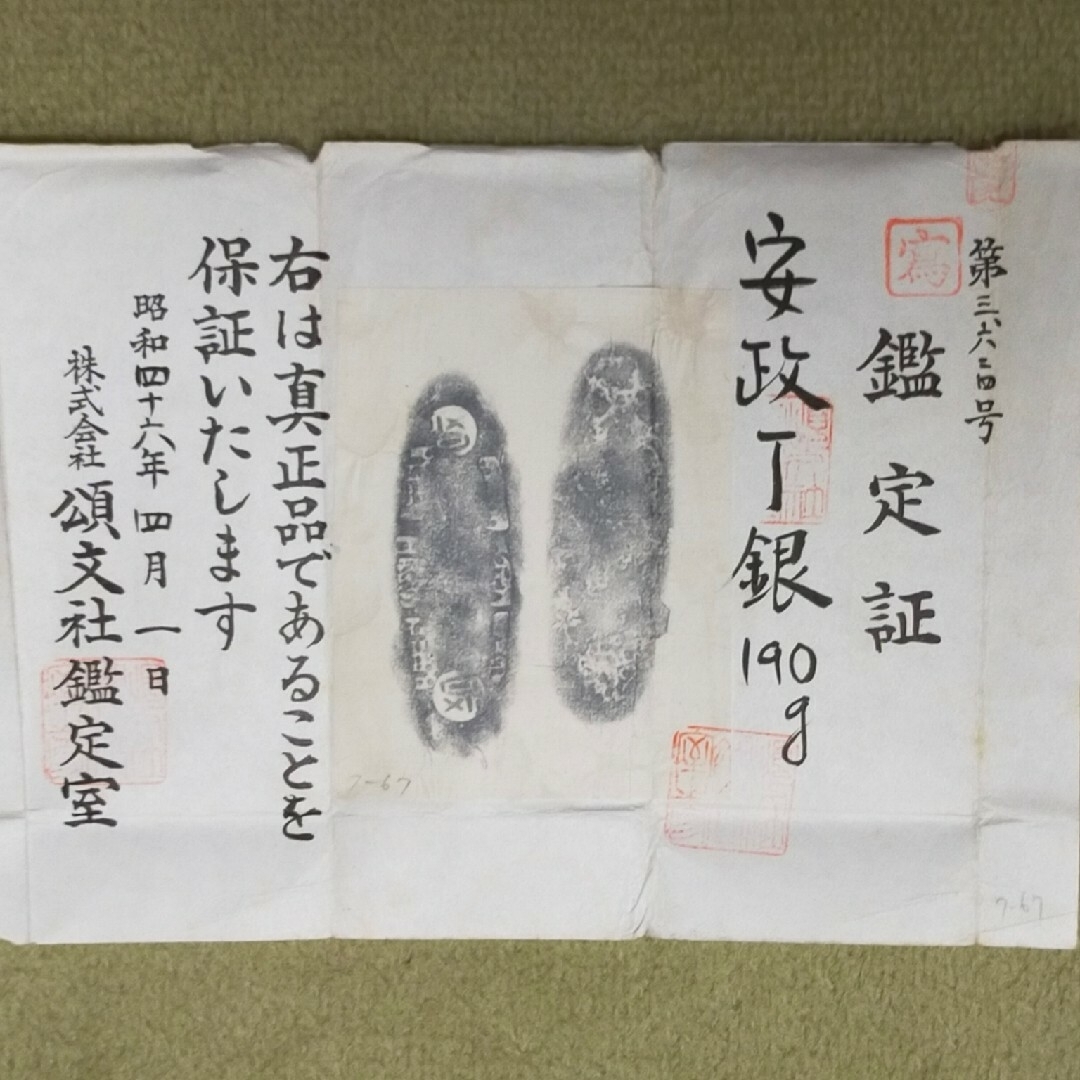 第三六二四号
寫
鑑定証
安政丁銀190g
右は真正品であることを
保証いたします
昭和四十六年四月一日
株式会社 頌文社鑑定室
7-67
7-67